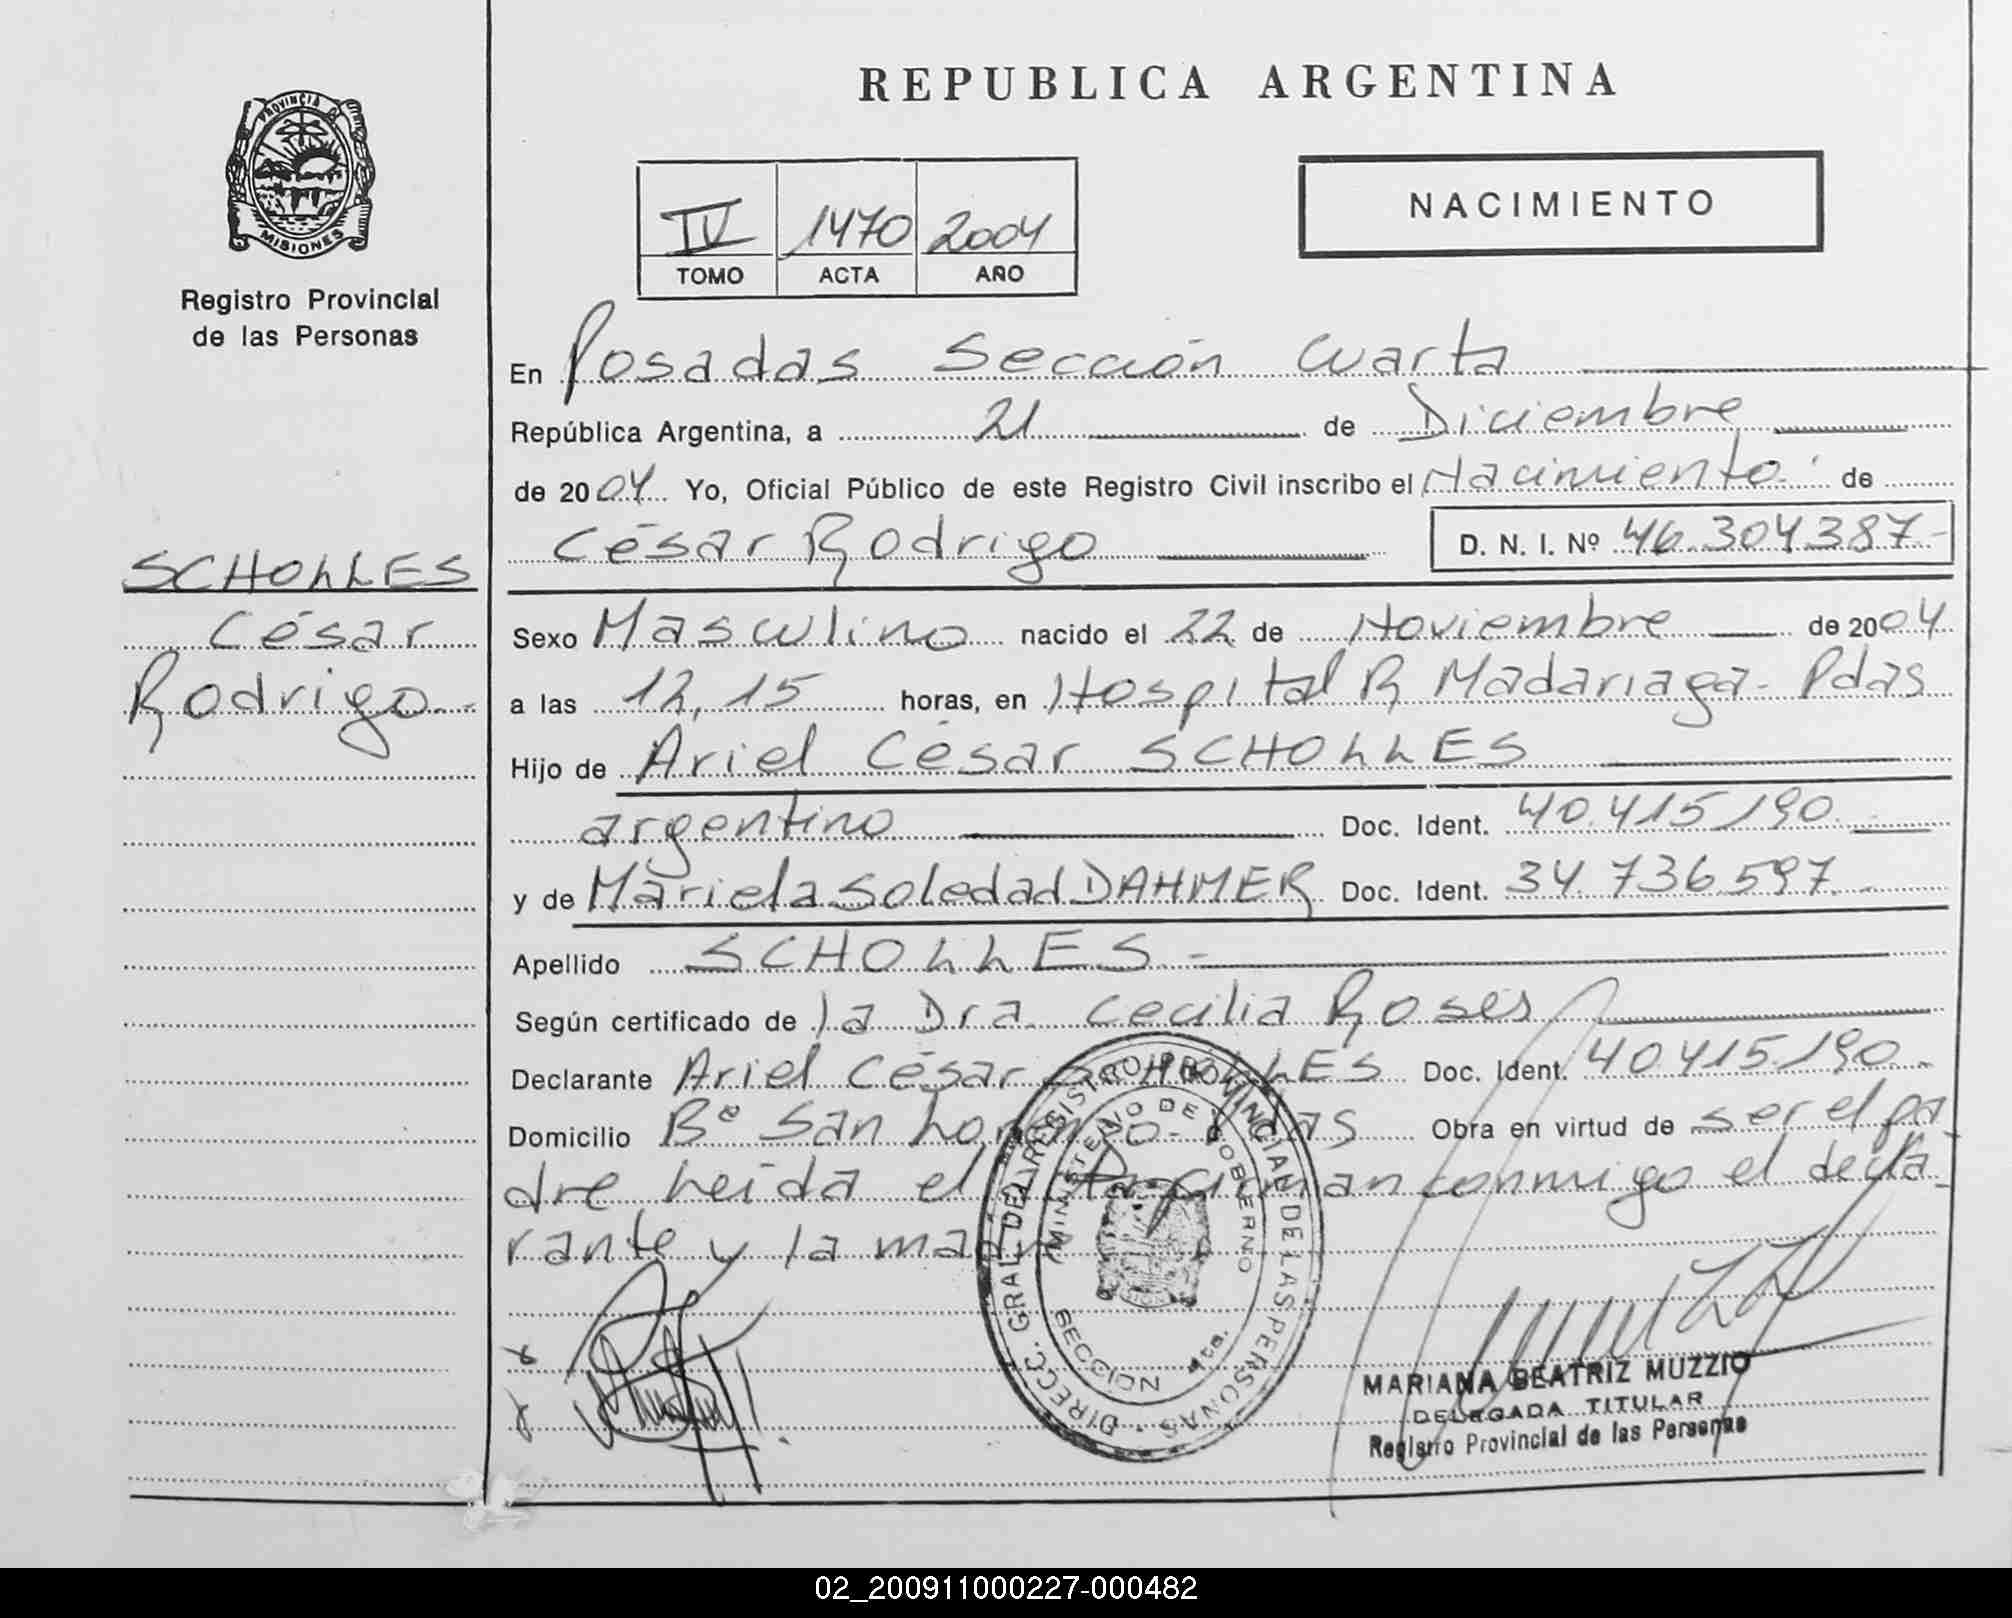 REPUBLICA ARGENTINA
PROVINCIA DE
MISIONES
Registro Provincial
de las Personas
IV 1470 2004
TOMO ACTA AÑO
NACIMIENTO
En Posadas Sección Cuarta
República Argentina, a 21 de Diciembre
de 2004 Yo, Oficial Público de este Registro Civil inscribo el Nacimiento de
César Rodrigo D. N. I. Nº 46.304387.-
SCHOLLES
César
Rodrigo.-
Sexo Masculino nacido el 22 de Noviembre de 2004
a las 12,15 horas, en Hospital R Madariaga- Pdas
Hijo de Ariel César SCHOLLES
argentino Doc. Ident. 40.415190.
y de Mariela Soledad DAHMER Doc. Ident. 34.736.597.-
Apellido SCHOLLES.-
Según certificado de la Dra. Cecilia Roses
Declarante Ariel César SCHOLLES Doc. Ident. 40.415.190.-
Domicilio Bº San Lorenzo- Pdas Obra en virtud de ser el pa
dre Leida el acta firman conmigo el decla-
rante y la madre
DIRECC. GRAL. DEL REGISTRO PROVINCIAL DE LAS PERSONAS
MINISTERIO DE GOBIERNO
SECCION 4ta.
MARIANA BEATRIZ MUZZIO
DELEGADA TITULAR
Registro Provincial de las Personas
02_200911000227-000482